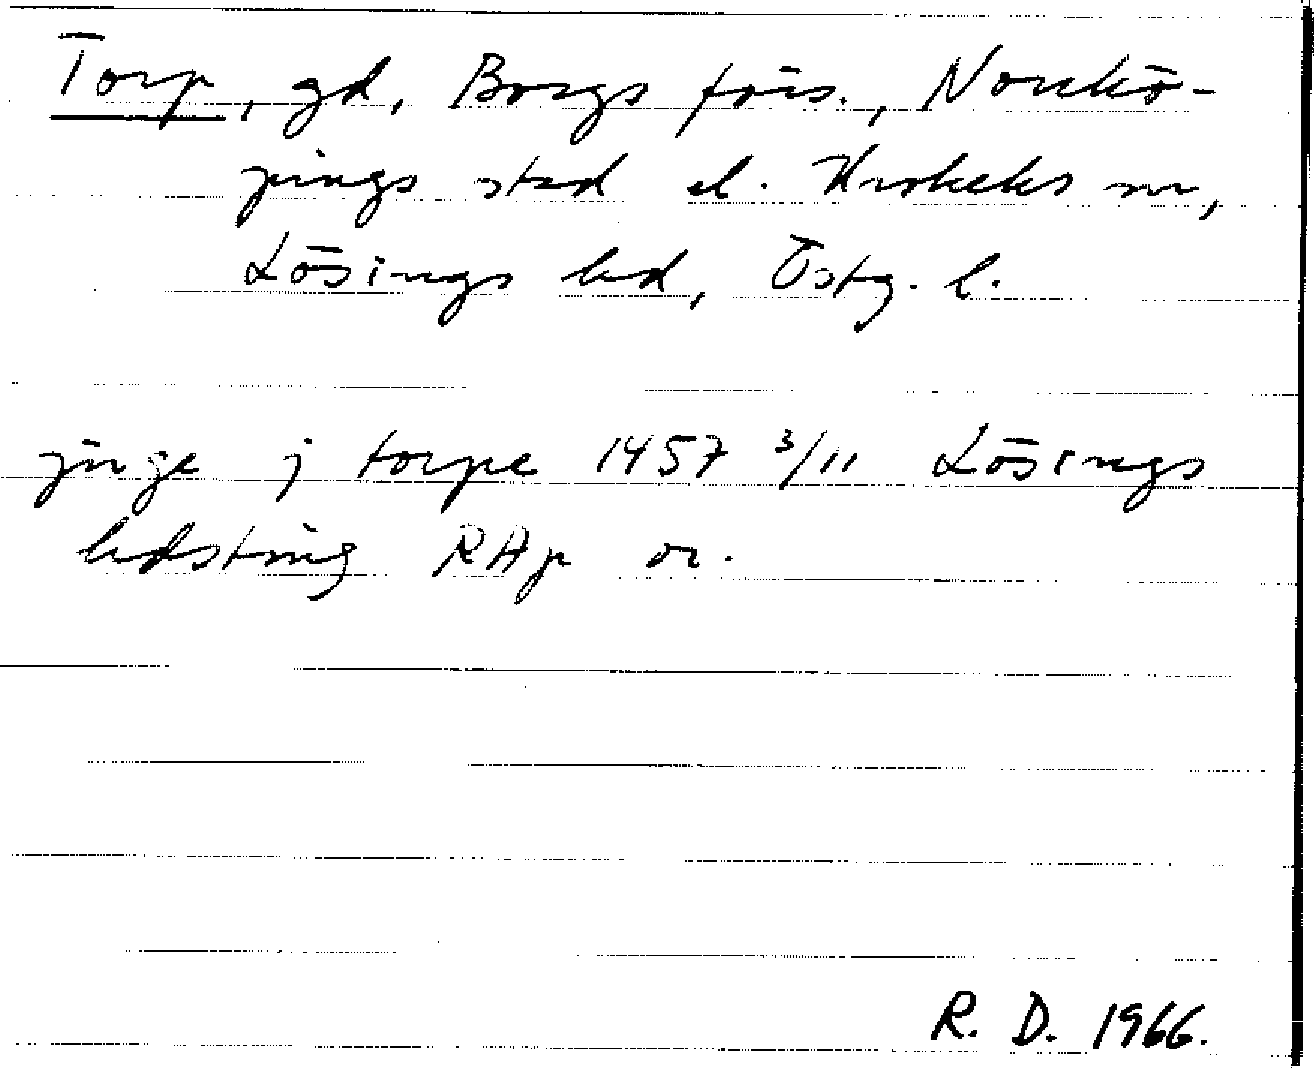 Torp, gd, Borgs förs., Norrkö-
pings stad el. Krokeks sn,
Lösings hd, Östg. l.
jnge j torpe 1457 3/11 Lösings
hdsting RAp or.
R. D. 1966.